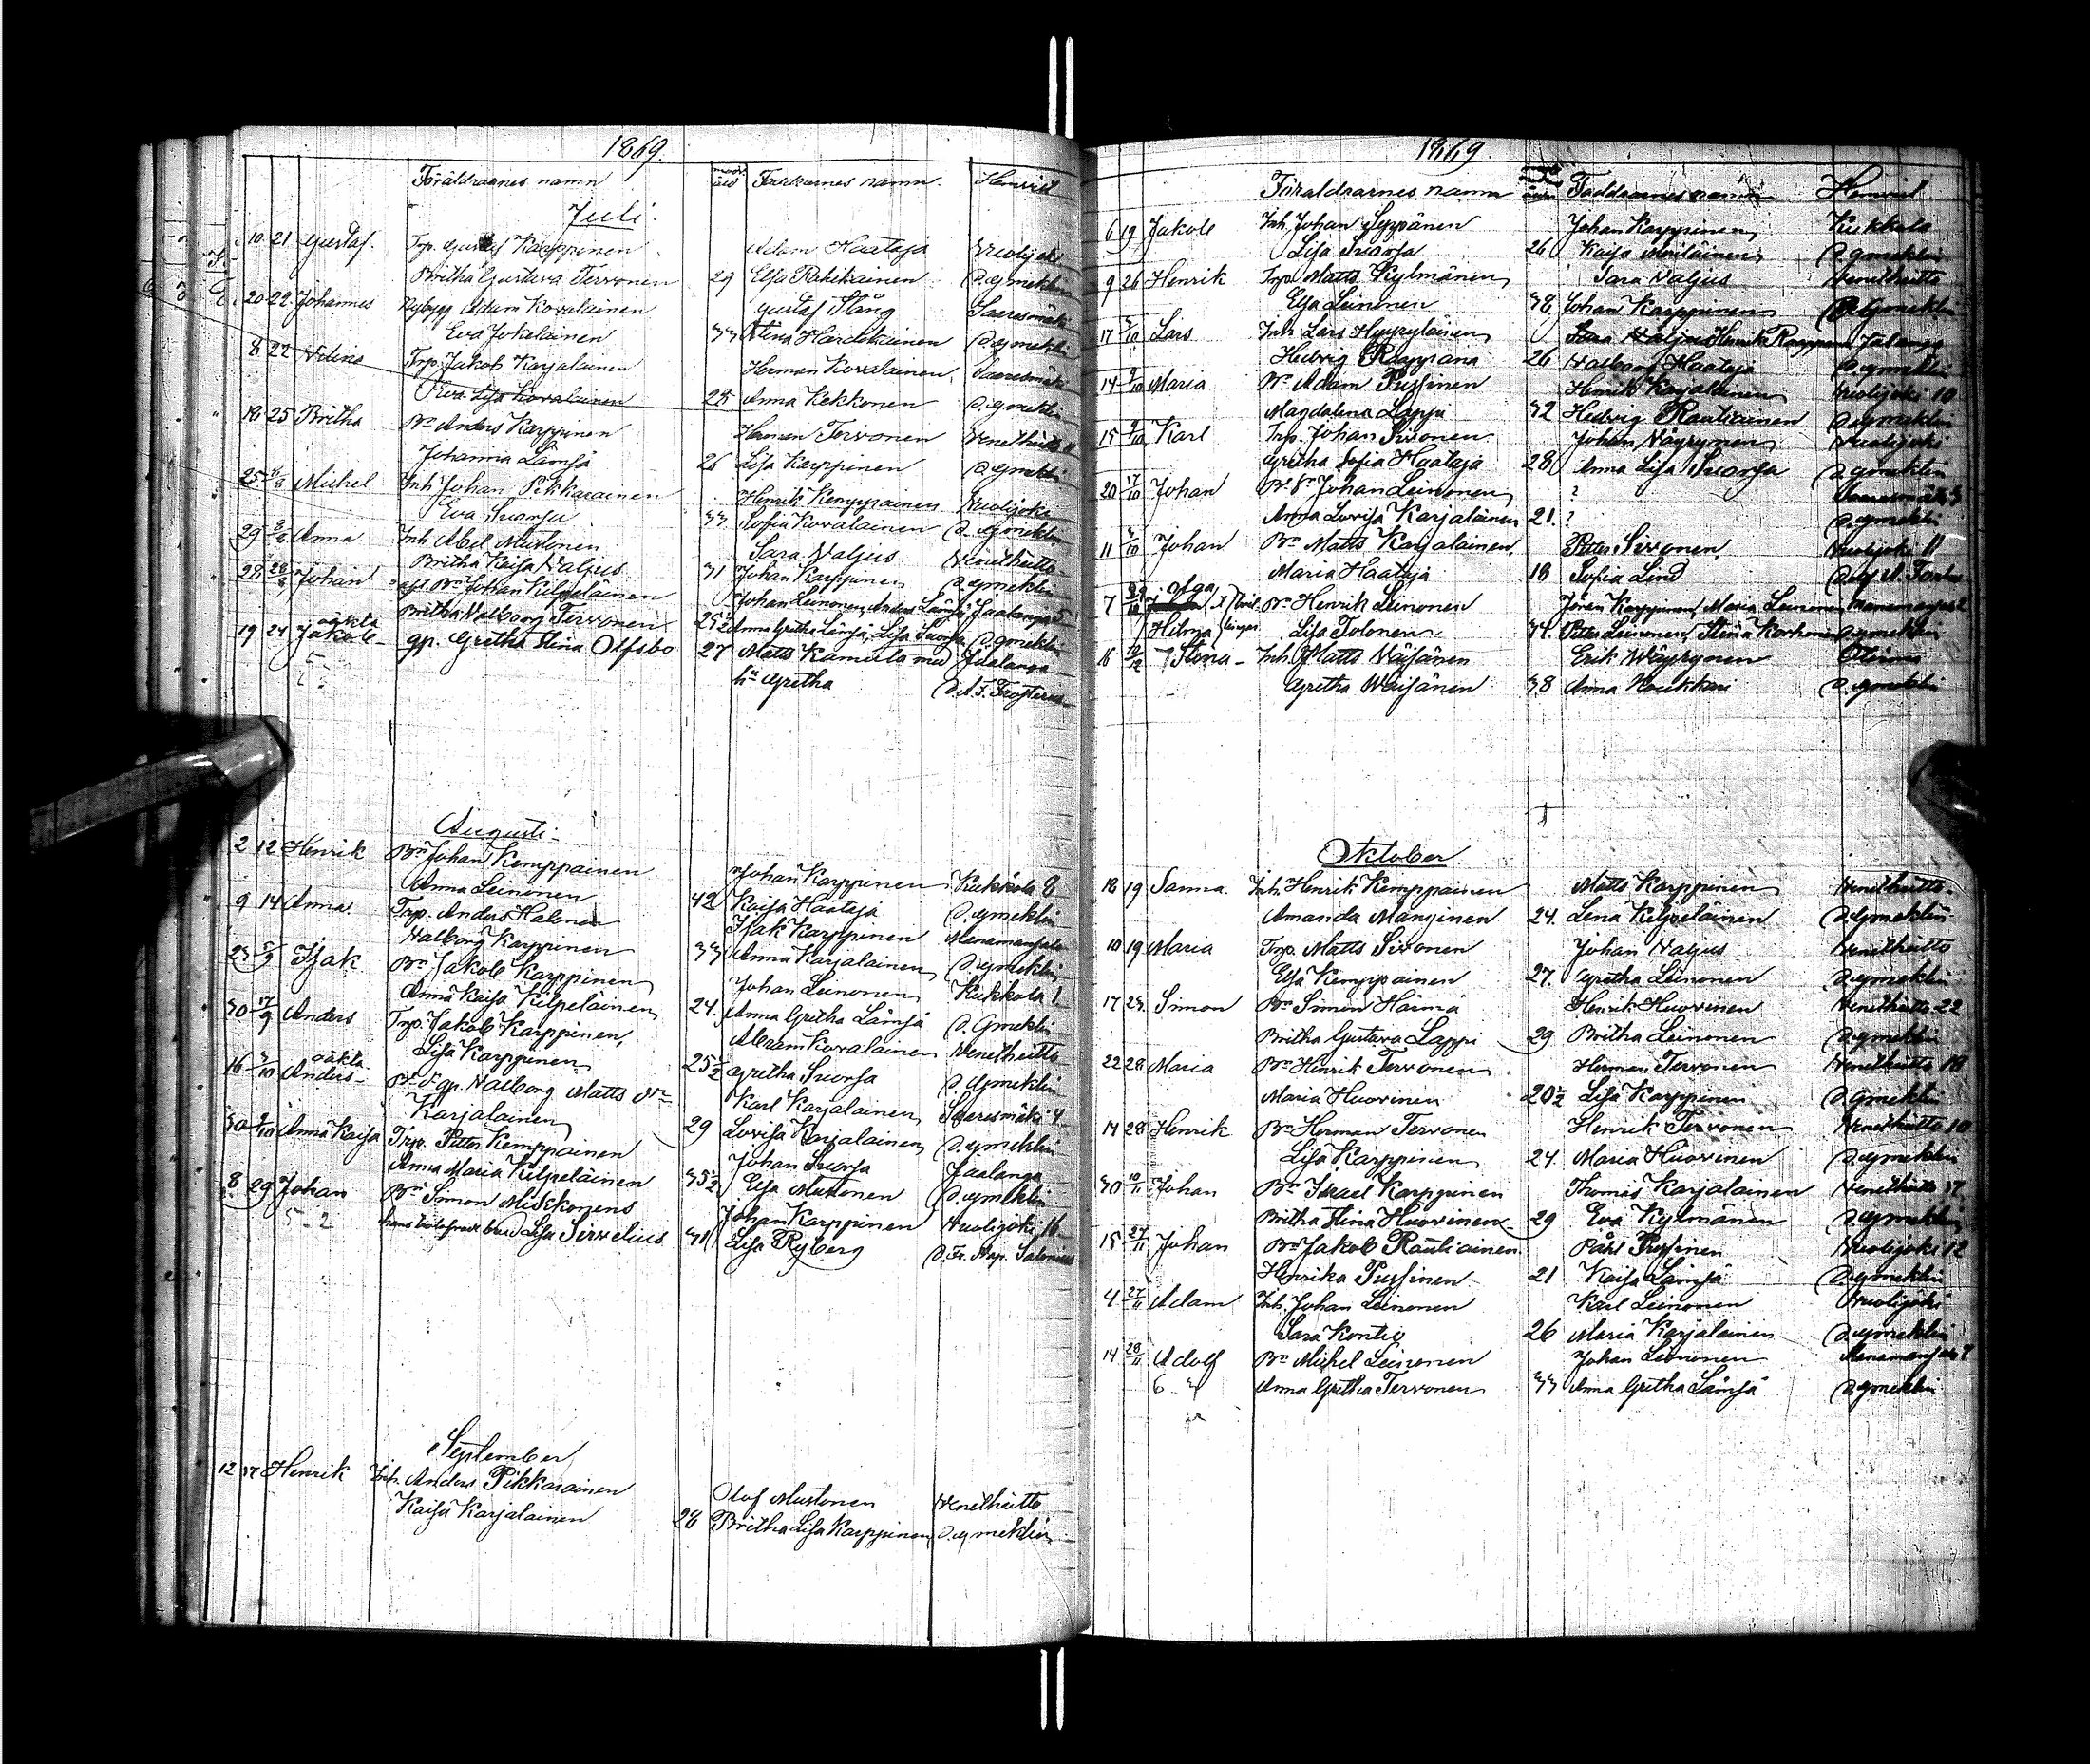 1869.
Föräldrarnes namn Faddrarnes namn. Hemvist
Juli.
10 21 Gustaf. Trp. Gustaf Karppinen Adam Haataja Vuolijoki
Britha Gustava Tervonen 29 Elsa Pehikäinen D. Gmeklin
20 22 Johannes Nybygg. Adam Kovalainen Gustaf Stång Saaresmäki
Eva Jokelainen 33 Stina Hardikainen D. Gmeklin
8 22 Trp. Jakob Karjalainen Herman Kovalainen Saaresmäki
Eva Lisa Kovalainen 28 Anna Kekkonen D. Gmeklin
18 25 Britha Bn Anders Karppinen Herman Tervonen Venetheitto
Johanna Lämsä 26 Lisa Karppinen D. Gmeklin
25 Michel Inh. Johan Pikkarainen Henrik Kemppainen Vuolijoki
Eva Svorsa 33 Sofia Kovalainen D. Gmeklin
29 Anna Inh. Abel Mustonen Sara Valjus Venetheitto
Britha Kaisa Valjus 31 Johan Karppinen D. Gmeklin
28 28/8 Johan Johan Kilpeläinen Johan Leinonen, Anders Lämsä Jaalanga 5
Britha Valborg Tervonen 25 1/2 Anna Gretha Lämsä, Lisa Svorsa D. Gmeklin
oäkta
19 24 Jakob gp. Gretha Stina Olfsbo 27 Matts Kamula med Jaalanga
5 hn Gretha
Augusti
2 12 Henrik Bn Johan Kemppainen Johan Karppinen Kukkola 8
Anna Leinonen 42 Kaisa Haataja D. Gmeklin
9 14 Anna Trp. Anders Halonen Isak Karppinen Manamansalo
Valborg Karppinen 33 Anna Karjalainen D. Gmeklin
23 5/9 Isak Bn Jakob Karppinen Johan Leinonen Kukkola 1
Anna Kaisa Kilpeläinen 24. Anna Gretha Lämsä D. Gmeklin
30 17/9 Anders Trp. Jakob Karppinen, Abram Kovalainen Venetheitto
Lisa Karppinen 25 1/2 Gretha Svorsa D. Gmeklin
oäkta
16 3/10 Anders Bn dr gp. Valborg Matts dr Karl Karjalainen Saaresmäki 4
Karjalainen 29 Lovisa Karjalainen D. Gmeklin
30 9/10 Anna Kaisa Trp. Petter Kemppainen Johan Svorsa Jaalanga
Anna Maria Kilpeläinen 35 1/2 Elsa Mustonen D. Gmeklin
8 29 Johan Bn Simon Miskonens Johan Karppinen Vuolijoki 16
5 2 hans trolofvade brud Lisa Sirvelius 31 Lisa Ryberg D. Fr. Arp. Salonius
September
12 17 Henrik Inh. Anders Pikkarainen Olof Mustonen Venetheitto
Kaisa Karjalainen 28 Britha Lisa Karppinen D. Gmeklin
1869.
Föräldrarnes namn Faddrarnes namn Hemvist
6 19 Jakob Inh. Johan Seppänen Johan Karppinen Kukkola
Lisa Svorsa 26 Kaisa Moilainen D. Gmeklin
9 26 Henrik Trp. Matts Kylmänen Sara Valjus Venetheitto
Elsa Leinonen 38. Johan Karppinen D. Gmeklin
17 3/10 Lars Inh. Lars Hyyryläinen Sara Valjus Henrik Karppinen Jaalanga
Hedvig Räppänä 26 Valborg Haataja D. Gmeklin
14 9/10 Maria Bn Adam Pussinen Henrik Karjalainen Vuolijoki 10
Magdalena Lappi 32 Hedvig Rautiainen D. Gmeklin
15 9/10 Karl Trp. Johan Sivonen Johan Väyrynen Vuolijoki
Gretha Sofia Haataja 28. Anna Lisa Svorsa D. Gmeklin
20 17/10 Johan Bn Sn Johan Leinonen ?
Anna Lovisa Karjalainen 21. ? D. Gmeklin
11 3/10 Johan Bn Matts Karjalainen Petter Sivonen Vuolijoki 11
Maria Haataja 18 Sofia Lind
Olga
7 Bn Henrik Leinonen Jöran Karppinen, Maria Leinonen Manamansalo 2
Hilma Lisa Tolonen 34. Petter Leinonen, Stina Korhonen D. Gmeklin
16 Stina Inh. Matts Väisänen Erik Väyrynen
Gretha Väisänen 38 Anna Koukkari D. Gmeklin
Oktober
18 19 Sanna. Inh. Henrik Kemppainen Matts Karppinen Venetheitto
Amanda Manninen 24. Lena Kilpeläinen D. Gmeklin
10 19 Maria Trp. Matts Sivonen Johan Valjus Venetheitto
Elsa Kemppainen 27. Gretha Leinonen D. Gmeklin
17 23 Simon Bn Simon Härmä Henrik Huovinen Venetheitto 22
Britha Gustava Lappi 29 Britha Leinonen D. Gmeklin
22 28 Maria Bn Henrik Tervonen Herman Tervonen Venetheitto 18
Maria Huovinen 20 1/2 Lisa Karppinen D. Gmeklin
14 28 Henrik Bn Herman Tervonen Henrik Tervonen Venetheitto 10
Lisa Karppinen 24. Maria Huovinen D. Gmeklin
30 10/11 Johan Bn Israel Karppinen Thomas Karjalainen Venetheitto 17
Britha Stina Huovinen 29 Eva Kylmänen D. Gmeklin
15 27/11 Johan Bn Jakob Rautiainen Påhl Pussinen Vuolijoki 12
Henrika Pussinen 21 Kaisa Lämsä D. Gmeklin
4 27/11 Adam Inh. Johan Leinonen Karl Leinonen Vuolijoki
Sara Kontio 26 Maria Karjalainen D. Gmeklin
14 28/11 Adolf Bn Michel Leinonen Johan Leinonen Manamansalo 7
6 3 Anna Gretha Tervonen 33 Anna Gretha Lämsä D. Gmeklin